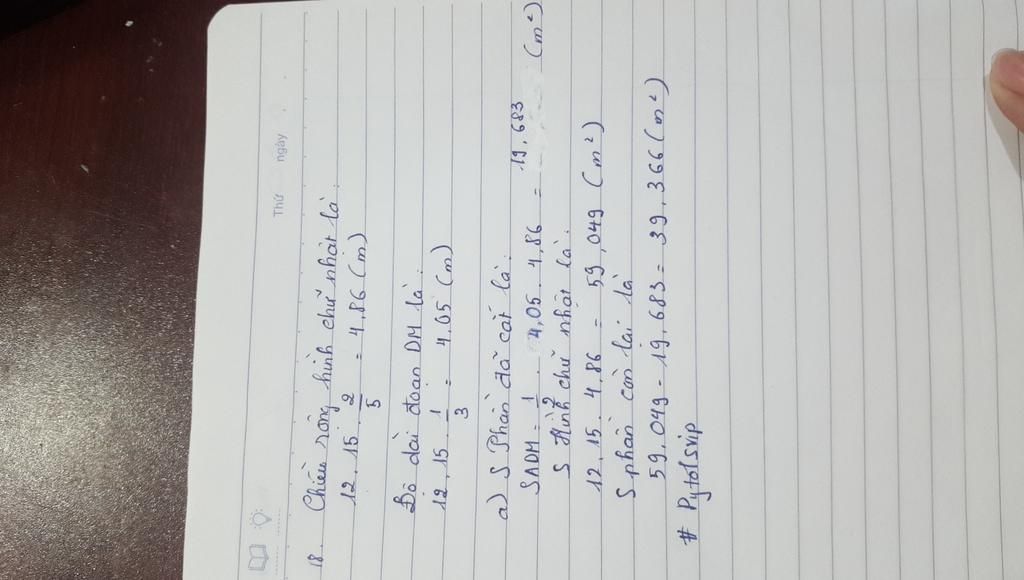 Thứ ngày
18. Chiều rộng hình chữ nhật là.
12,15 . 2/5 = 4,86 (m)
Độ dài đoạn DM là.
12,15 . 1/3 = 4,05 (m)
a) S Phần đã cắt là.
SADM = 1/2 . 4,05 . 4,86 = 19,683 (m²)
S Hình chữ nhật là.
12,15 . 4,86 = 59,049 (m²)
S phần còn lại là
59,049 - 19,683 = 39,366 (m²)
# Pytolsvip